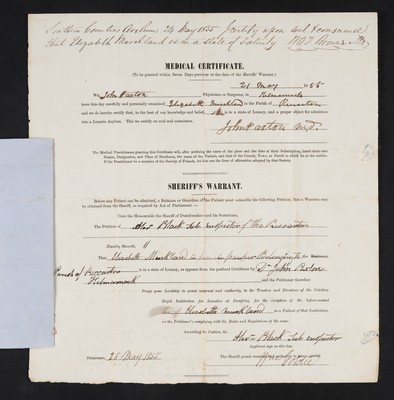 Southern Counties Asylum 24 May 1855 I certify upon soul & conscience
that Elizabeth Muirkland is in a state of Fatuity
MEDICAL CERTIFICATE.
(To be granted within Seven Days previous to the date of the Sheriffs' Warrant.)
21 May 1855
We, John Paxton Physicians or Surgeons, in Kilmarnock
have this day carefully and personally examined Elizabeth Muirkland in the Parish of Riccarton
and do hereby certify that, to the best of our knowledge and belief, is in a state of Lunacy, and a proper object for admission
into a Lunatic Asylum. This we certify on soul and conscience.
John Paxton M.D.
The Medical Practitioners granting this Certificate will, after prefixing the name of the place and the date of their Subscription, insert their own
Names, Designation, and Place of Residence, the name of the Patient, and that of the County, Town, or Parish in which he or she resides.
If the Practitioner be a member of the Society of Friends, he has use the form of affirmation adopted by that Society.
SHERIFF'S WARRANT.
Before any Patient can be admitted, a Relation or Guardian of the Patient must subscribe the following Petition, that a Warrant may
be obtained from the Sheriff, as required by Act of Parliament:—
Unto the Honourable the Sheriff of Dumfriesshire and his Substitutes,
The Petition of Alexr Black Sub Inspector of Poor Riccarton
Humbly Sheweth,
That Elizabeth Muirkland a pauper belonging to the
Parish of Riccarton is in a state of Lunacy, as appears from the prefixed Certificate by Dr John Paxton
Kilmarnock and the Petitioner therefore
Prays your Lordship to grant warrant and authority, to the Trustees and Directors of the Crichton
Royal Institution for Lunatics at Dumfries, for the reception of the before-named
Elizabeth Muirkland as a Patient of that Institution,
on the Petitioner's complying with the Rules and Regulations of the same.
According to Justice, &c.
Alexr Black Sub Inspector
Applicant sign on this line.
Dumfries, 25 May 1855 The Sheriff grants warrant